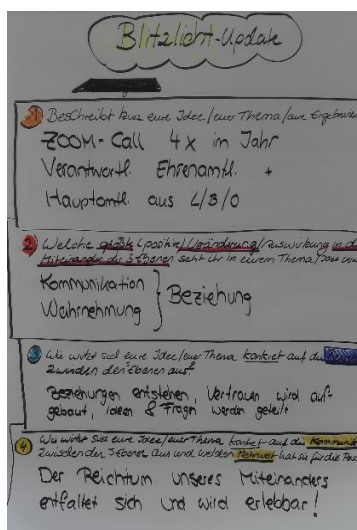 Blitzlicht-Update
1 Beschreibt kurz eure Idee/euer Thema/eure Ergebnisse
ZOOM-Call 4x im Jahr
Verantwortl. Ehrenamtl. +
Hauptamtl. aus L/B/O
2 Welche größte (positive) Veränderung/Auswirkung in
Miteinander der 3 Ebenen seht ihr in eurem Thema/
Kommunikation } Beziehung
Wahrnehmung
3 Wie wirkt sich eure Idee/euer Thema konkret auf die
zwischen den Ebenen aus?
Beziehungen entstehen, Vertrauen wird auf-
gebaut, Ideen & Fragen werden geteilt
4 Wie wirkt sich eure Idee/euer Thema konkret auf die Kommunik
zwischen den 3 Ebenen aus und welchen Mehrwert hat sie für die
Der Reichtum unseres Miteinanders
entfaltet sich und wird erlebbar!